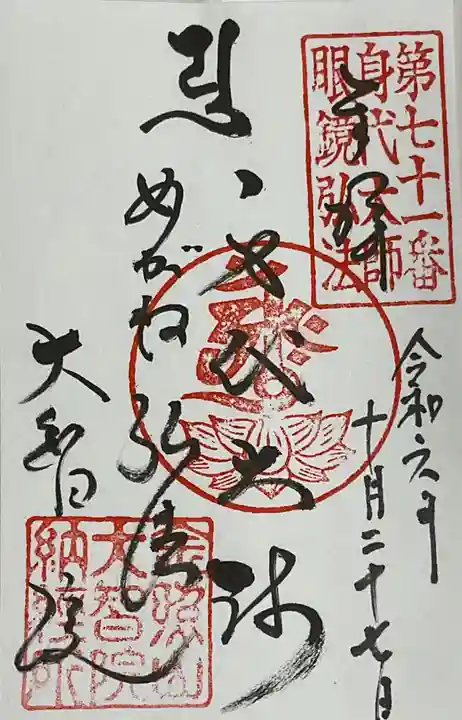 第七十一番
身代大師
眼鏡弘法
奉拝
令和六年
十月二十七日
身代大師
めがね
弘法
大智院
金照山
大智院
納経所